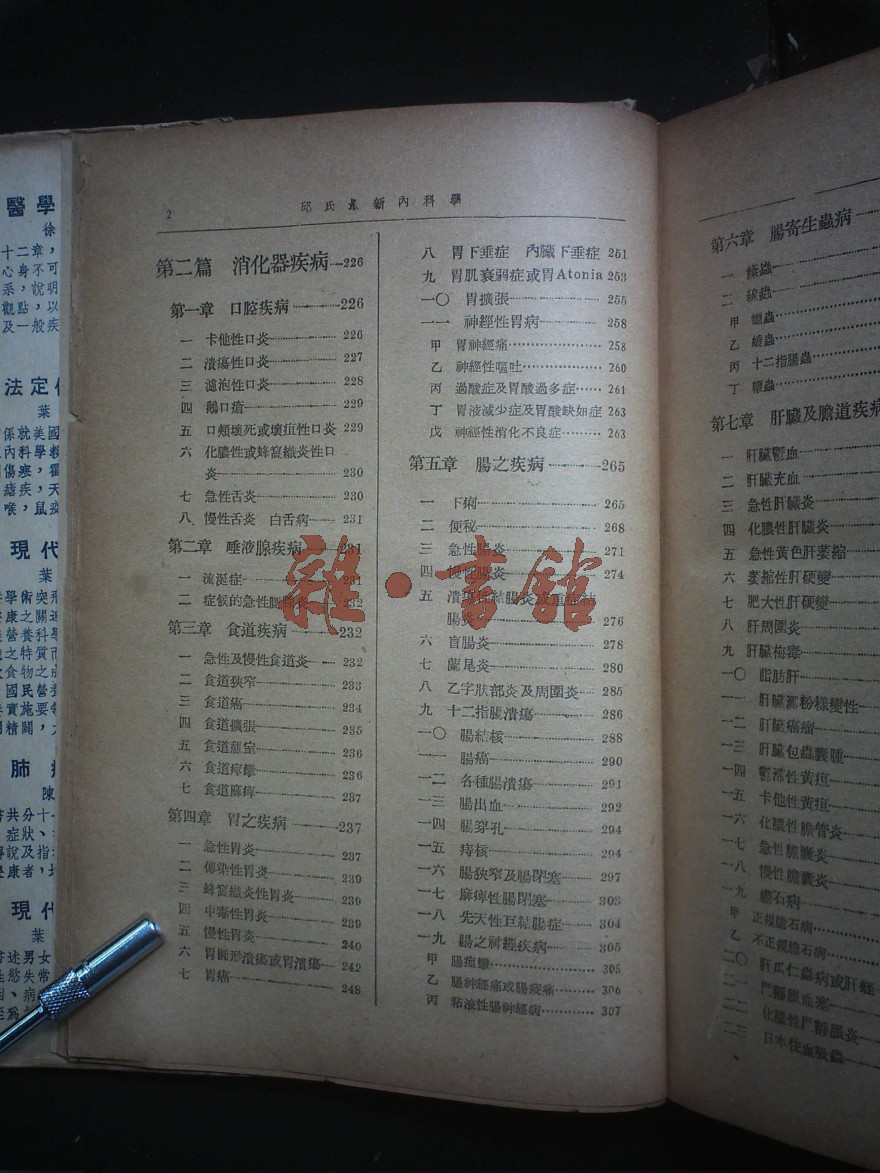 2
邱氏最新內科學
第二篇 消化器疾病 226
第一章 口腔疾病 226
一 卡他性口炎 226
二 潰瘍性口炎 227
三 濾泡性口炎 228
四 鵝口瘡 229
五 口頰壞死或壞疽性口炎 229
六 化膿性或蜂窩織炎性口
炎 230
七 急性舌炎 230
八 慢性舌炎 白舌病 231
第二章 唾液腺疾病 231
一 流涎症 231
二 症候的急性 232
第三章 食道疾病 232
一 急性及慢性食道炎 232
二 食道狹窄 233
三 食道癌 234
四 食道擴張 235
五 食道憩室 236
六 食道痙攣 236
七 食道麻痺 237
第四章 胃之疾病 237
一 急性胃炎 237
二 傳染性胃炎 239
三 蜂窩織炎性胃炎 239
四 中毒性胃炎 239
五 慢性胃炎 240
六 胃圓形潰瘍或胃潰瘍 242
七 胃癌 248
八 胃下垂症 內臟下垂症 251
九 胃肌衰弱症或胃Atonia 253
一〇 胃擴張 255
一一 神經性胃病 258
甲 胃神經痛 258
乙 神經性嘔吐 260
丙 過酸症及胃酸過多症 261
丁 胃液減少症及胃酸缺如症 263
戊 神經性消化不良症 263
第五章 腸之疾病 265
一 下痢 265
二 便秘 268
三 急性腸炎 271
四 慢性腸炎 274
五 潰瘍性結腸炎或重症結
腸炎 276
六 盲腸炎 278
七 蘭尾炎 280
八 乙字狀部炎及周圍炎 285
九 十二指腸潰瘍 286
一〇 腸結核 288
一一 腸癌 290
一二 各種腸潰瘍 291
一三 腸出血 292
一四 腸穿孔 294
一五 痔核 294
一六 腸狹窄及腸閉塞 297
一七 麻痺性腸閉塞 303
一八 先天性巨結腸症 304
一九 腸之神經疾病 305
甲 腸痙攣 305
乙 腸神經痛或腸疝痛 306
丙 粘液性腸神經病 307
第六章 腸寄生蟲病
一 絛蟲
二 線蟲
甲
乙 蟯蟲
丙 十二指腸蟲
丁 鞭蟲
第七章 肝臟及膽道疾病
一 肝臟鬱血
二 肝臟充血
三 急性肝臟炎
四 化膿性肝臟炎
五 急性黃色肝萎縮
六 萎縮性肝硬變
七 肥大性肝硬變
八 肝周圍炎
九 肝臟梅毒
一〇 脂肪肝
一一 肝臟澱粉樣變性
一二 肝臟癌瘤
一三 肝臟包蟲囊腫
一四 鬱滯性黃疸
一五 卡他性黃疸
一六 化膿性膽管炎
一七 急性膽囊炎
一八 慢性膽囊炎
一九 膽石病
甲 正規膽石病
乙 不正規膽石病
二〇 肝瓜仁蟲病或肝蛭
二一 門靜脈血塞
二二 化膿性門靜脈炎
二三 日本住血吸蟲
醫學
徐
十二章，
心身不可
系，說明
觀點，以
及一般疾
法定
葉
係就美國
內科學
傷寒，霍
瘧疾，天
喉，鼠疫
現代
葉
學術突飛
康之關
營養科學
之特質而
食物之成
國民營養
實施要領
精闢，
肺
陳
共分十
症狀、
解說及指
康者，
現代
葉
述男女
性慾失常
、病
雜·書館